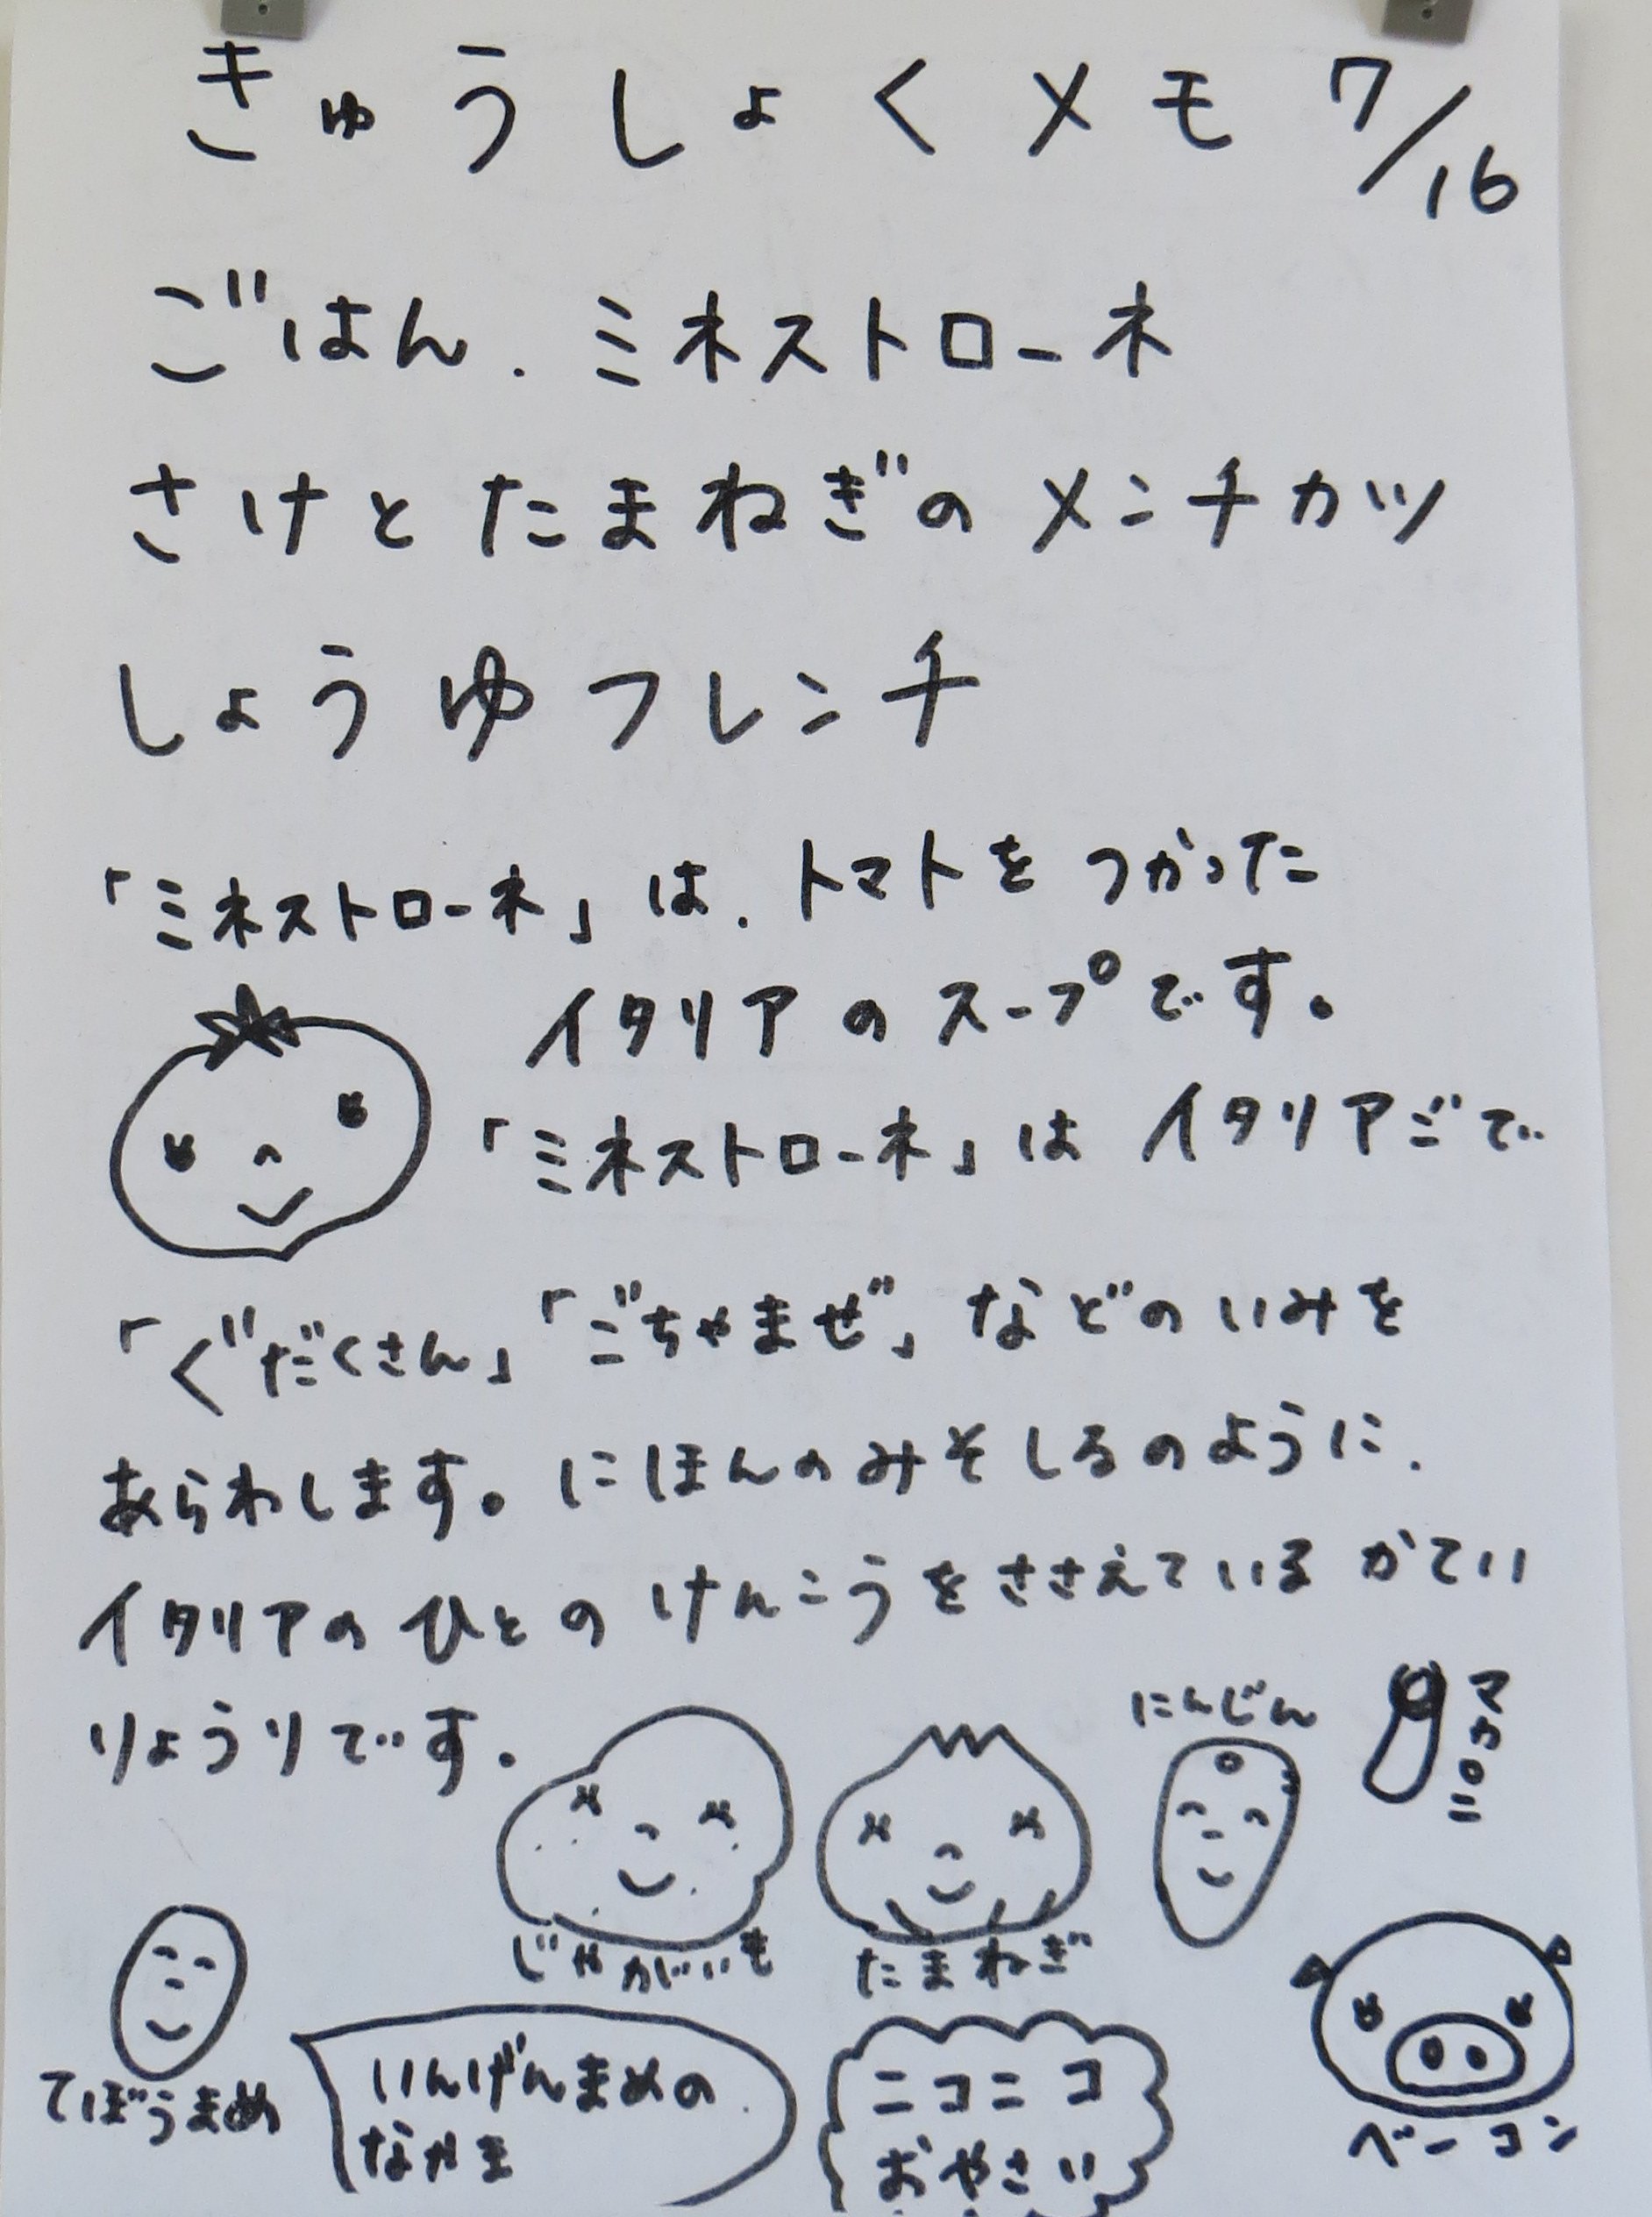 きゅうしょくメモ 7/16
ごはん、ミネストローネ
さけとたまねぎのメンチカツ
しょうゆフレンチ
「ミネストローネ」は、トマトをつかった
イタリアのスープです。
「ミネストローネ」はイタリアごで
「ぐだくさん」「ごちゃまぜ」などのいみを
あらわします。にほんのみそしるのように、
イタリアのひとのけんこうをささえているかてい
りょうりです。
にんじん
マカロニ
じゃがいも
たまねぎ
てぼうまめ
いんげんまめの
なかま
ニコニコ
おやさい
ベーコン